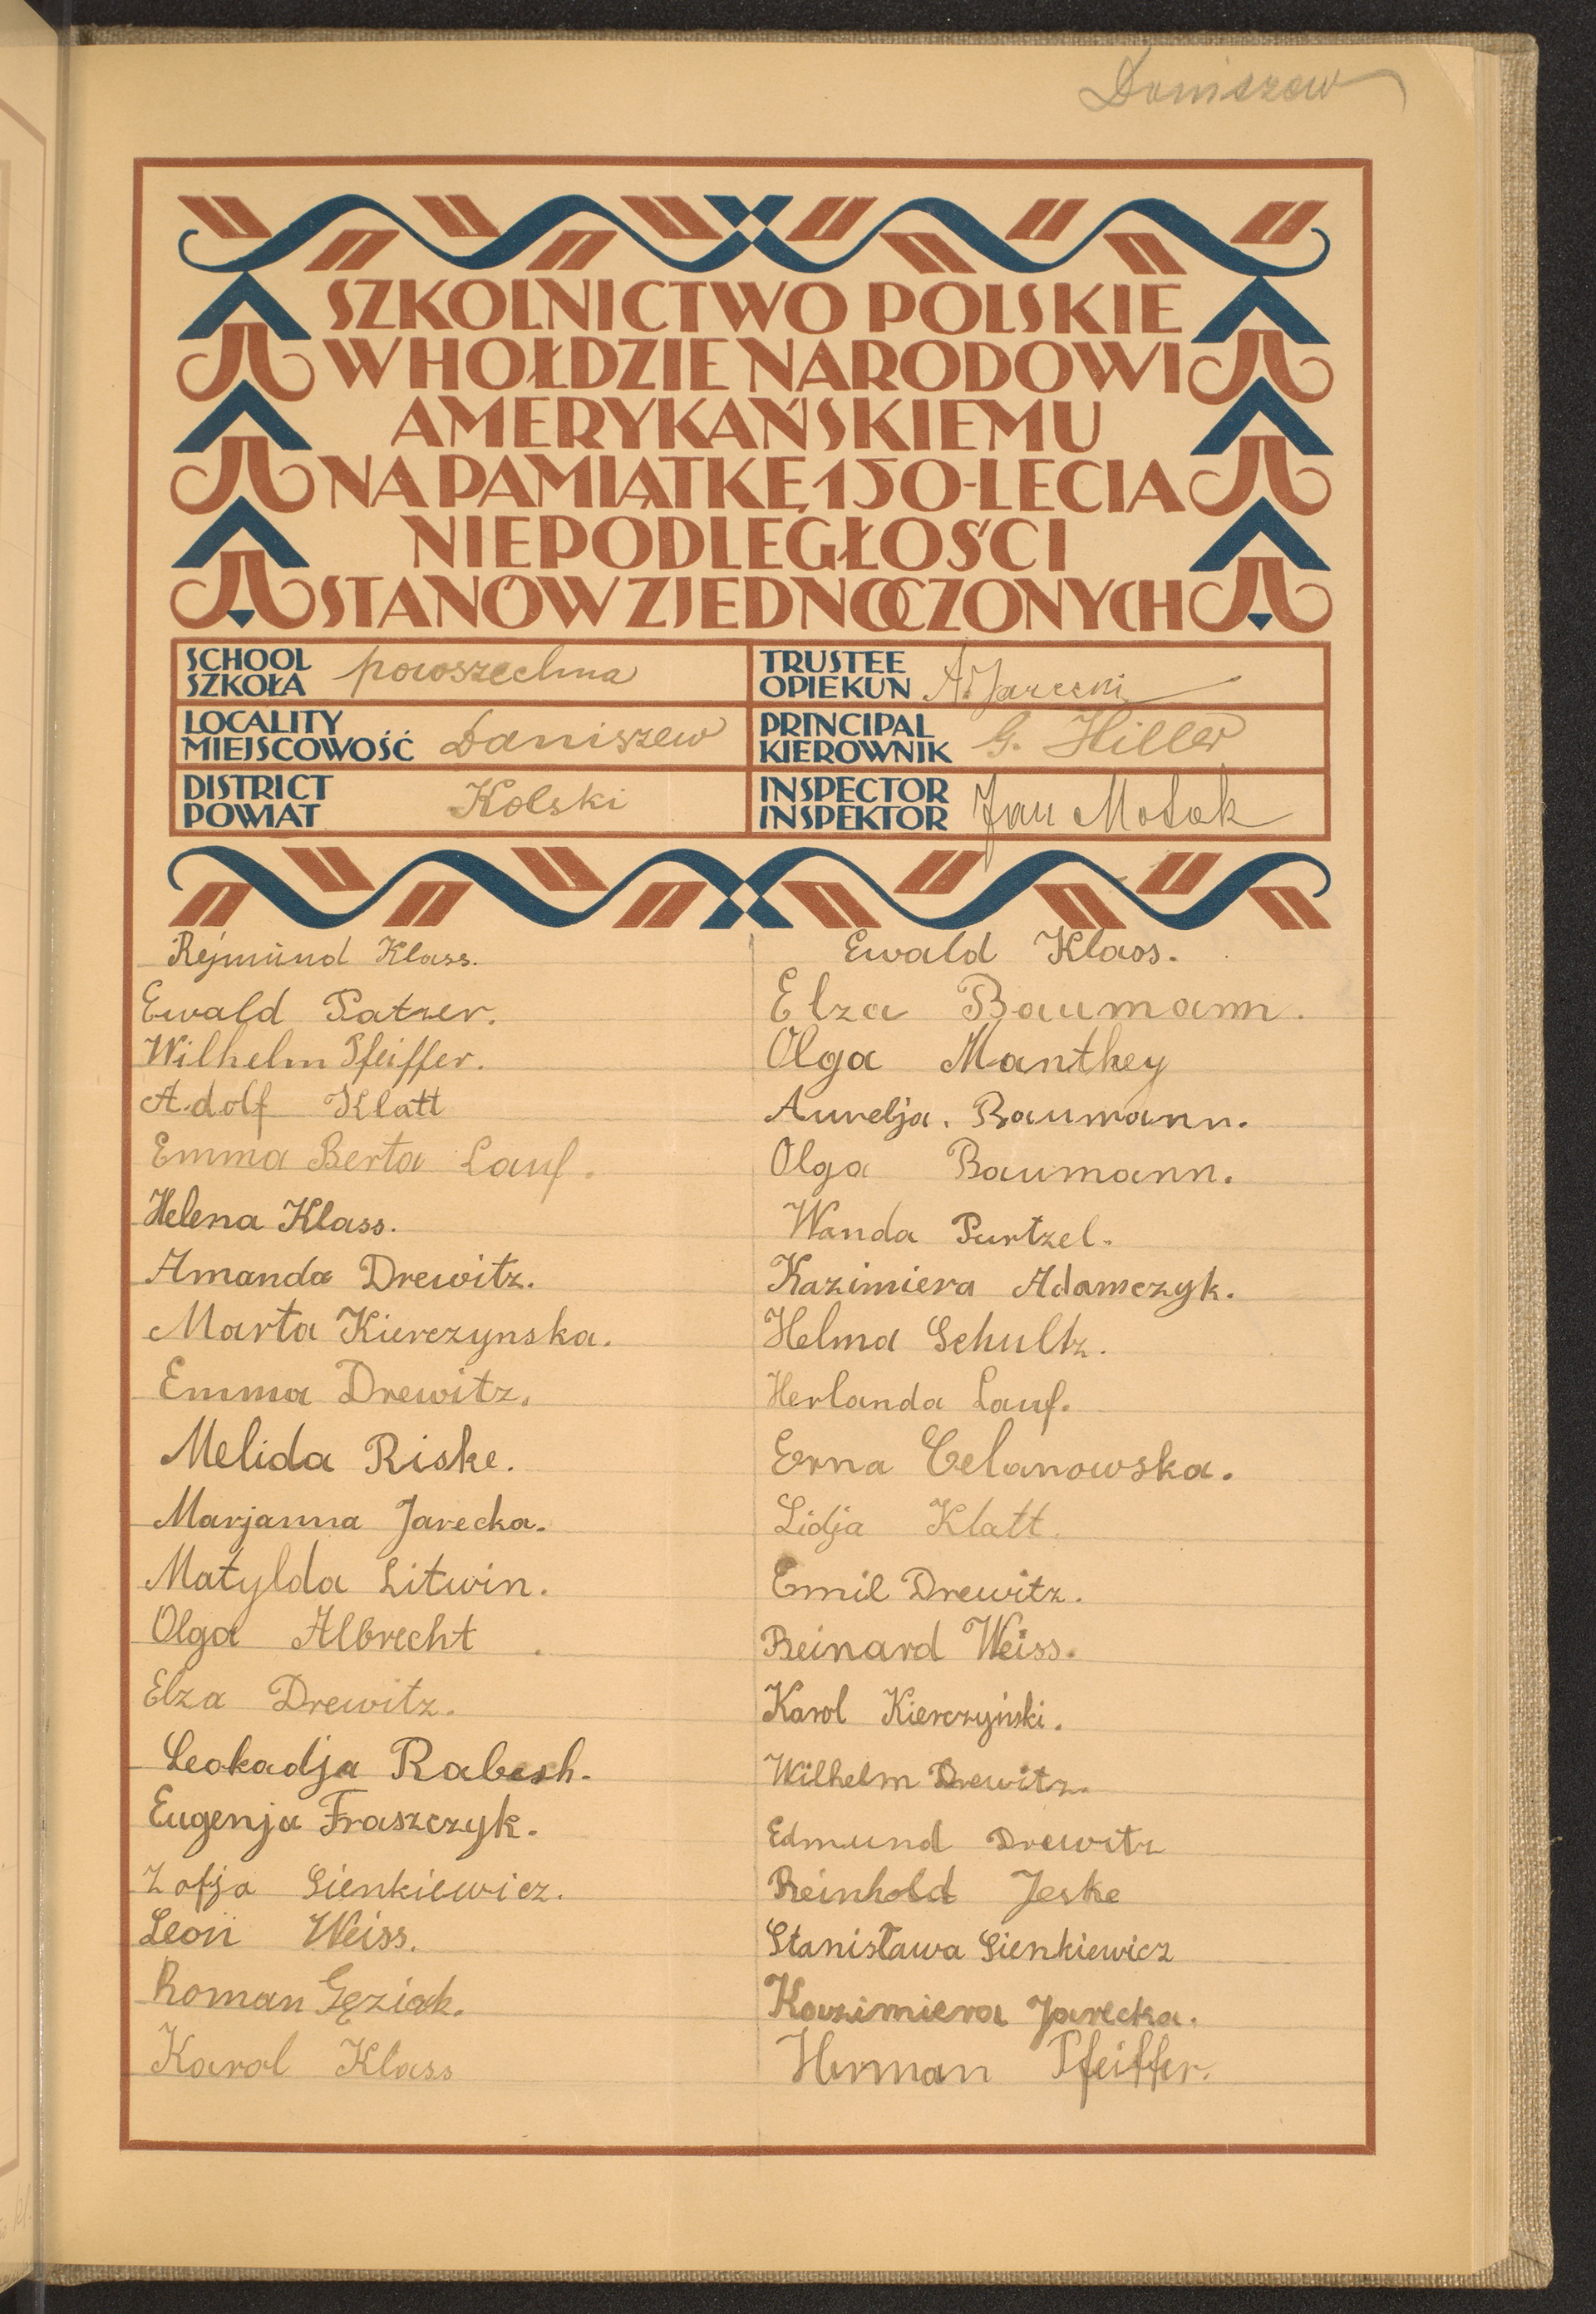 Daniszew
SZKOLNICTWO POLSKIE
W HOŁDZIE NARODOWI
AMERYKAŃSKIEMU
NA PAMIĄTKĘ 150-LECIA
NIEPODLEGŁOŚCI
STANÓW ZJEDNOCZONYCH
SCHOOL
SZKOŁA powszechna
TRUSTEE
OPIEKUN A. Jarecki
LOCALITY
MIEJSCOWOŚĆ Daniszew
PRINCIPAL
KIEROWNIK G. Hiller
DISTRICT
POWIAT Kolski
INSPECTOR
INSPEKTOR Jan
Rejmund Klass.
Ewald Patzer.
Wilhelm Pfeiffer.
Adolf Klatt
Emma Berta Lauf.
Helena Klass.
Amanda Drewitz.
Marta Kierczynska.
Emma Drewitz.
Melida Riske.
Marjanna Jarecka.
Matylda Litwin.
Olga Albrecht.
Elza Drewitz.
Leokadja Rabesh.
Eugenja Fraszczyk.
Zofja Sienkiewicz.
Leon Weiss.
Roman Gęziak.
Karol Klass
Ewald Klass.
Elza Baumann.
Olga Manthey
Aurelja. Baumann.
Olga Baumann.
Wanda Purtzel.
Kazimiera Adamczyk.
Helma Schultz.
Herlanda Lauf.
Erna Celanowska.
Lidja Klatt.
Emil Drewitz.
Reinard Weiss.
Karol Kierczyński.
Wilhelm Drewitz.
Edmund Drewitz
Reinhold Jeske
Stanisława Sienkiewicz
Kazimiera Jarecka.
Herman Pfeiffer.